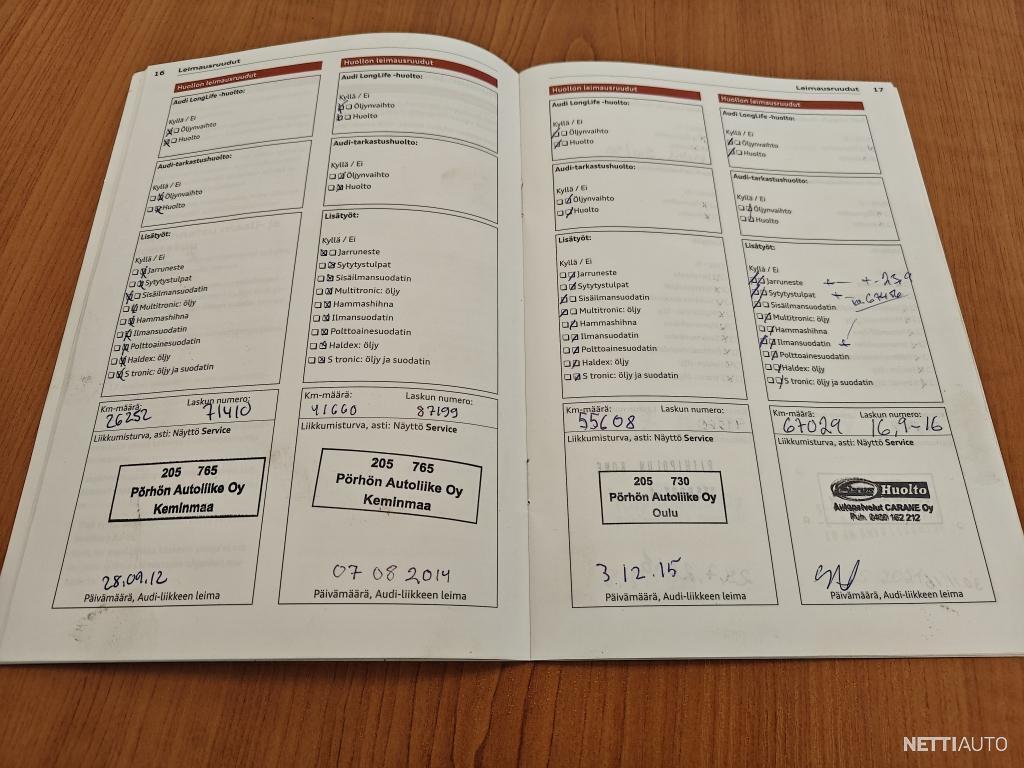 16 Leimausruudut
Huollon leimausruudut
Audi LongLife -huolto:
Kyllä / Ei
Öljynvaihto
Huolto
Audi-tarkastushuolto:
Kyllä / Ei
Öljynvaihto
Huolto
Lisätyöt:
Kyllä / Ei
Jarruneste
Sytytystulpat
Sisäilmansuodatin
Multitronic: öljy
Hammashihna
Ilmansuodatin
Polttoainesuodatin
Haldex: öljy
S tronic: öljy ja suodatin
Km-määrä: Laskun numero:
26252 71410
Liikkumisturva, asti: Näyttö Service
205 765
Pörhön Autoliike Oy
Keminmaa
28.09.12
Päivämäärä, Audi-liikkeen leima
Huollon leimausruudut
Audi LongLife -huolto:
Kyllä / Ei
Öljynvaihto
Huolto
Audi-tarkastushuolto:
Kyllä / Ei
Öljynvaihto
Huolto
Lisätyöt:
Kyllä / Ei
Jarruneste
Sytytystulpat
Sisäilmansuodatin
Multitronic: öljy
Hammashihna
Ilmansuodatin
Polttoainesuodatin
Haldex: öljy
S tronic: öljy ja suodatin
Km-määrä: Laskun numero:
41660 87199
Liikkumisturva, asti: Näyttö Service
205 765
Pörhön Autoliike Oy
Keminmaa
07 08 2014
Päivämäärä, Audi-liikkeen leima
Leimausruudut 17
Huollon leimausruudut
Audi LongLife -huolto:
Kyllä / Ei
Öljynvaihto
Huolto
Audi-tarkastushuolto:
Kyllä / Ei
Öljynvaihto
Huolto
Lisätyöt:
Kyllä / Ei
Jarruneste
Sytytystulpat
Sisäilmansuodatin
Multitronic: öljy
Hammashihna
Ilmansuodatin
Polttoainesuodatin
Haldex: öljy
S tronic: öljy ja suodatin
Km-määrä: Laskun numero:
55608
Liikkumisturva, asti: Näyttö Service
205 730
Pörhön Autoliike Oy
Oulu
3.12.15
Päivämäärä, Audi-liikkeen leima
Huollon leimausruudut
Audi LongLife -huolto:
Kyllä / Ei
Öljynvaihto
Huolto
Audi-tarkastushuolto:
Kyllä / Ei
Öljynvaihto
Huolto
Lisätyöt:
Kyllä / Ei
Jarruneste
Sytytystulpat
Sisäilmansuodatin
Multitronic: öljy
Hammashihna
Ilmansuodatin
Polttoainesuodatin
Haldex: öljy
S tronic: öljy ja suodatin
Km-määrä: Laskun numero:
67029 16,9-16
Liikkumisturva, asti: Näyttö Service
Huolto
Autopalvelut CARANE Oy
Puh. 0400 162 212
Päivämäärä, Audi-liikkeen leima
NETTIAUTO